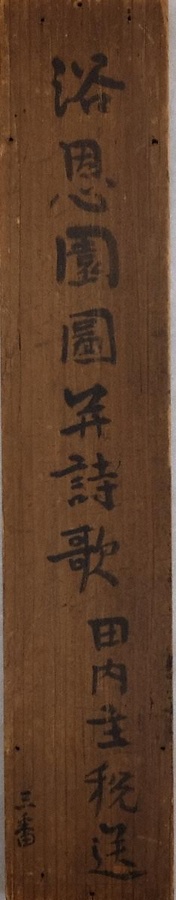 浴恩園圖并詩歌 田内主税送
三番